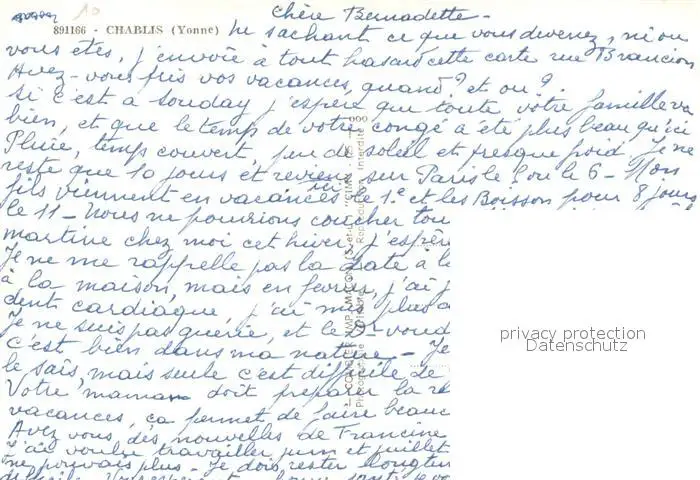 891166 - CHABLIS (Yonne)
Chère Bernadette -
Ne sachant ce que vous devenez, ni ou
vous etes, j'envoie à tout hasard cette carte rue Brancion
Avez-vous pris vos vacances, quand? et ou?
Si c'est à Souday j'espère que toute votre famille va
bien, et que le temps de votre congé a été plus beau qu'ici
Pluie, temps couvert, peu de soleil et presque froid. Je ne
reste que 10 jours et reviens sur Paris le 5 ou le 6 - Mon
fils viennent en vacances le 1e et les Boisson pour 8 jours
le 11 - Nous ne pourrions coucher tou
martine chez moi cet hiver j'espère
Je ne me rappelle pas la date à la
à la maison, mais en fevrier, j'ai
dent cardiaque, j'ai plus
Je ne suis pas guerie, et le Dr voud
c'est bien dans ma nature - Je
le sais, mais seule c'est difficile de
Votre maman doit preparer la
vacances, ça permet de faire beauc
Avez vous des nouvelles de Francine
J'ai voulu travailler juin et juillet
ne pouvais plus - Je dois rester longtem
privacy protection
Datenschutz